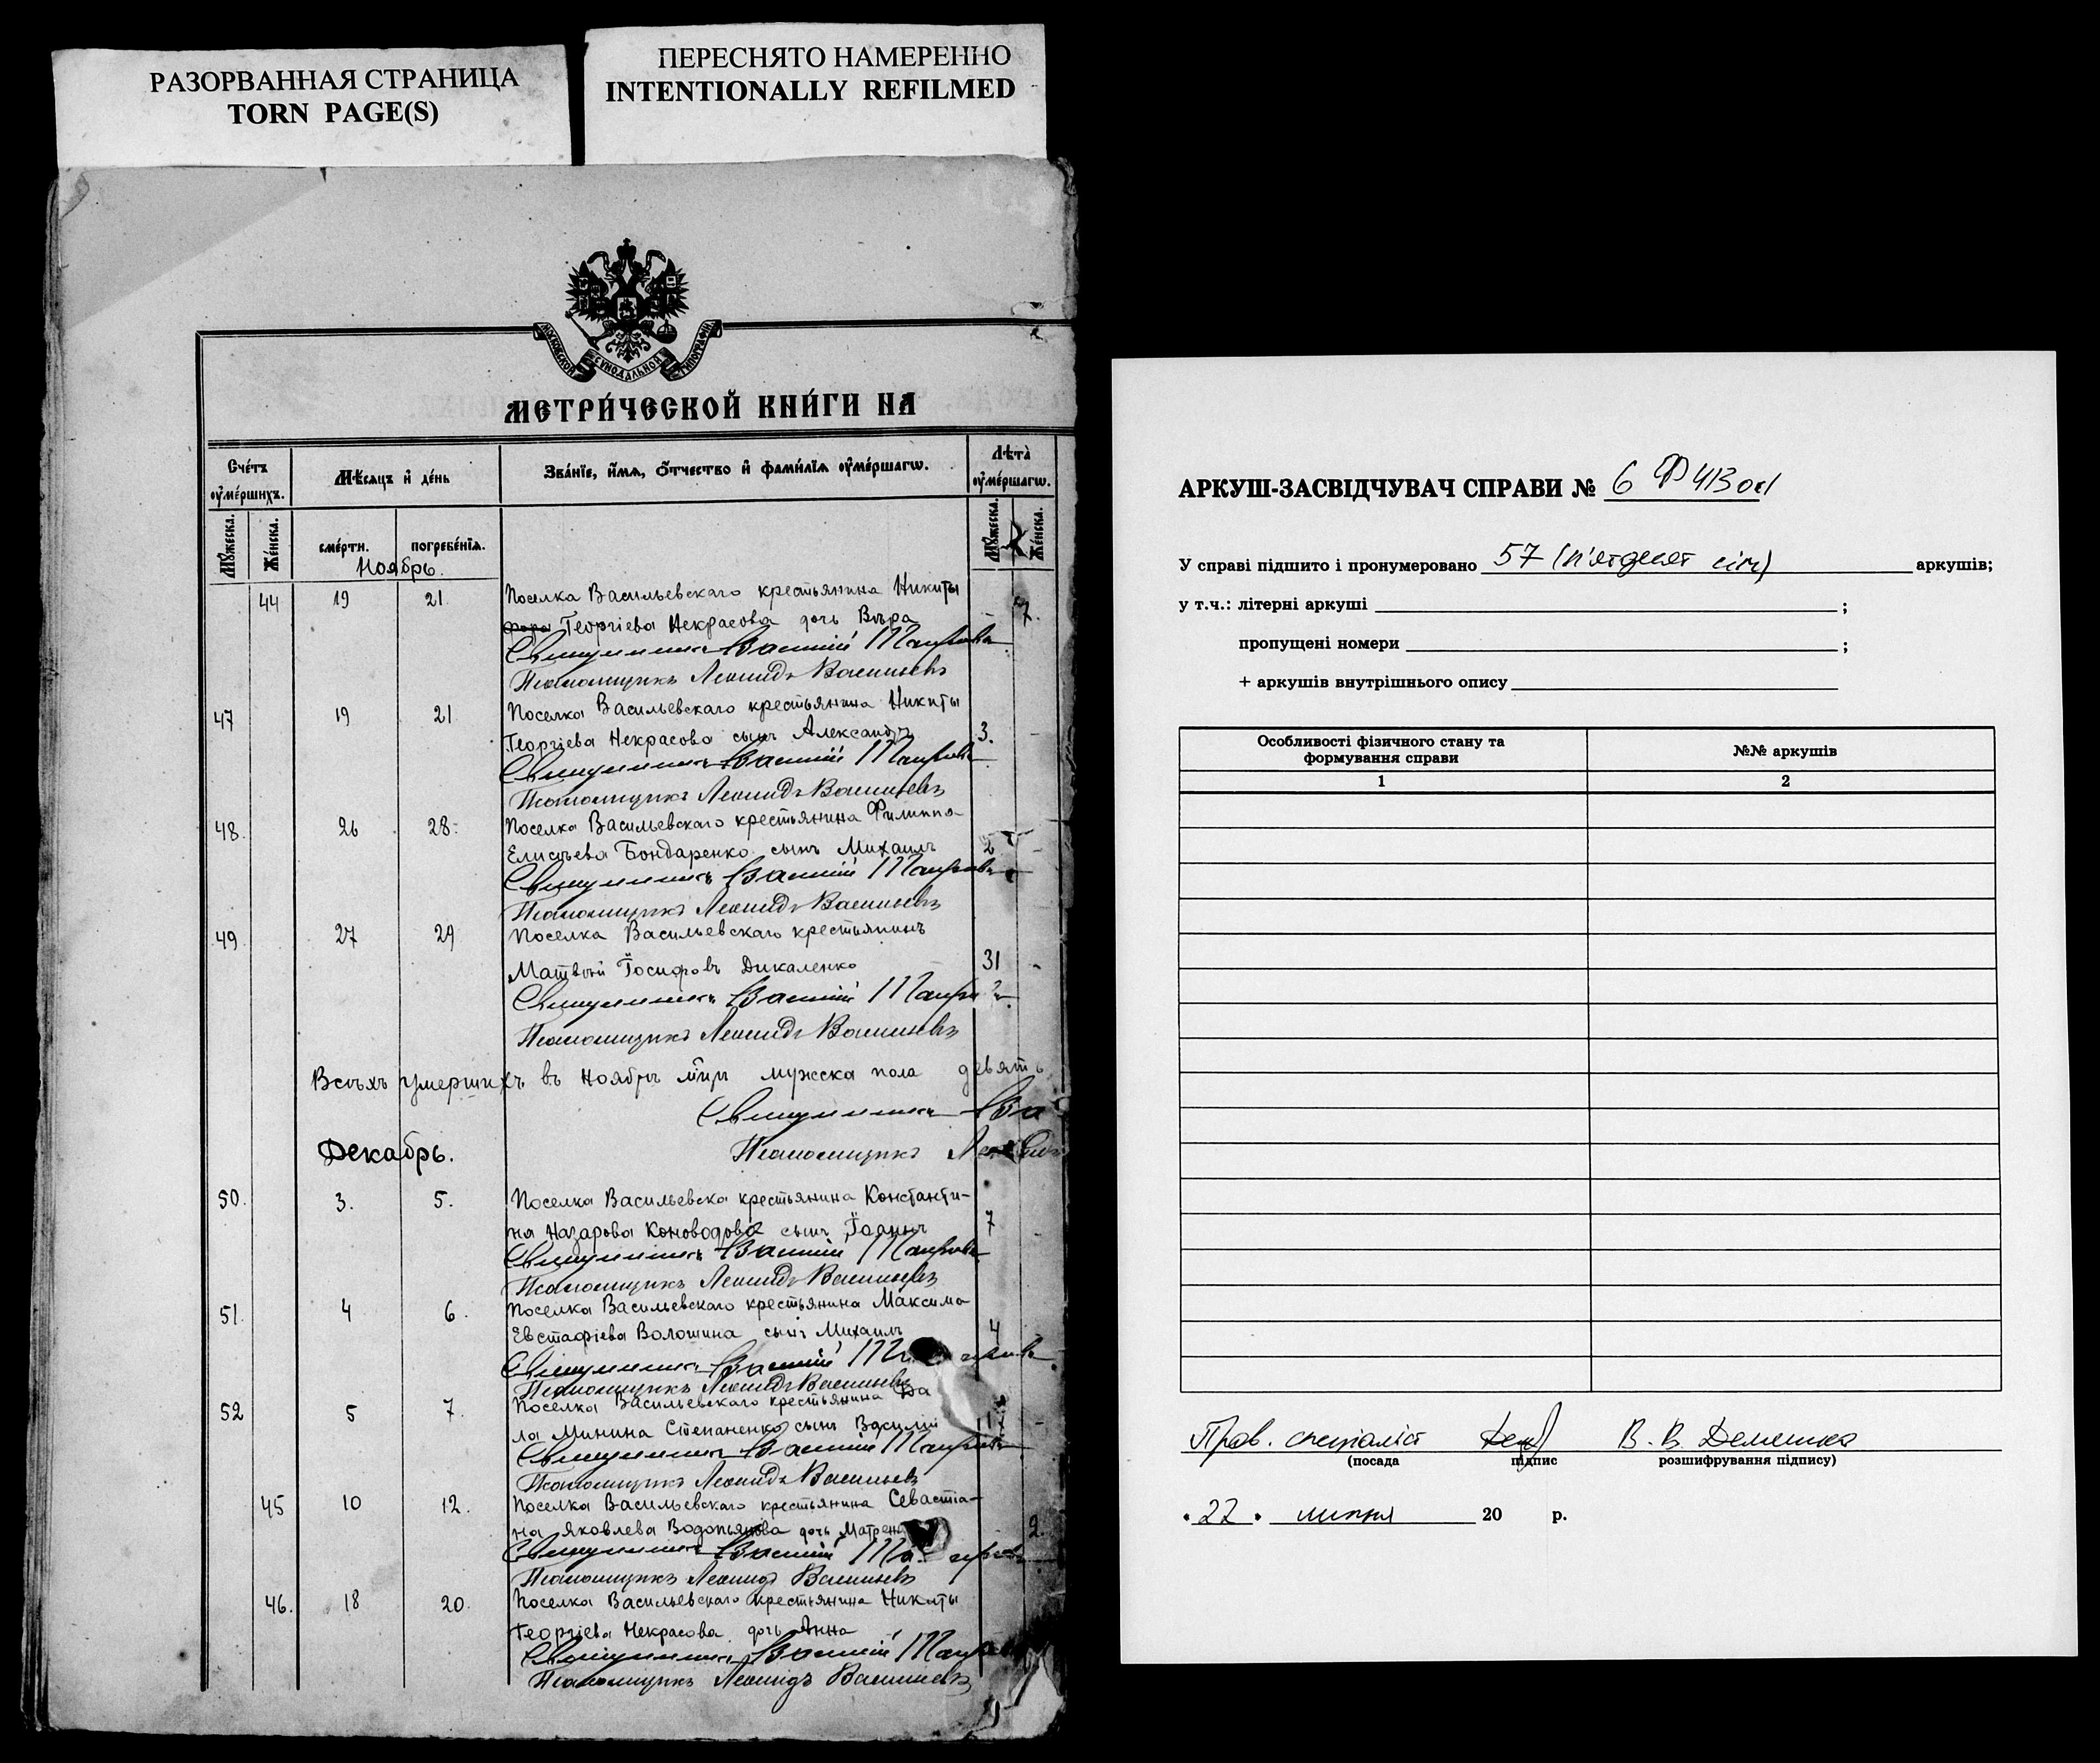 РАЗОРВАННАЯ СТРАНИЦА
TORN PAGE(S)
ПЕРЕСНЯТО НАМЕРЕННО
INTENTIONALLY REFILMED
МОСКОВСКОЙ СѴНОДАЛЬНОЙ ТИПОГРАФІИ
МЕТРИ́ЧЕСКОЙ КНИ́ГИ НА
Сче́тъ ᲂу҆ме́ршихъ.
Мѣ́сяцъ и҆ де́нь
Зва́нїе, и҆́мѧ, ѻ҆́тчество и҆ фами́лїѧ ᲂу҆ме́ршагѡ.
Лѣта̀ ᲂу҆ме́ршагѡ.
Мꙋ́жеска.
Же́нска.
сме́рти.
погребе́нїѧ.
Мꙋ́жеска.
Же́нска.
Ноябрь.
44 19 21 Поселка Васильевскаго крестьянина Никиты
Георгіева Некрасова дочь Вѣра - 7.
Священникъ Василій
Псаломщикъ Леонидъ Васильевъ
47 19 21 Поселка Васильевскаго крестьянина Никиты
Георгіева Некрасова сынъ Александръ 3. -
Священникъ Василій
Псаломщикъ Леонидъ Васильевъ
48. 26 28. Поселка Васильевскаго крестьянина Филиппа
Елисѣева Бондаренко сынъ Михаилъ 2 -
Священникъ Василій
Псаломщикъ Леонидъ Васильевъ
49 27 29 Поселка Васильевскаго крестьянинъ
Матвѣй Іосифовъ Дикаленко 31 -
Священникъ Василій
Псаломщикъ Леонидъ Васильевъ
Всѣхъ умершихъ въ Ноябрѣ м-цѣ мужска пола девять
Священникъ Ва
Декабрь.
Псаломщикъ Леонидъ
50. 3. 5. Поселка Васильевска крестьянина Константи-
на Назарова Коноводова сынъ Іоаннъ 7 -
Священникъ Василій
Псаломщикъ Леонидъ Васильевъ
51. 4 6. Поселка Васильевскаго крестьянина Максима
Евстафіева Волошина сынъ Михаилъ 4
Священникъ Василій
Псаломщикъ Леонидъ Васильевъ
52 5 7. Поселка Васильевскаго крестьянина Да
ла Минина Степаненко сынъ Василій -
Священникъ Василій
Псаломщикъ Леонидъ Васильевъ
45 10 12. Поселка Васильевскаго крестьянина Севастіа-
на Яковлева Водопьянова дочь Матрена 2.
Священникъ Василій
Псаломщикъ Леонидъ Васильевъ
46. 18 20. Поселка Васильевскаго крестьянина Никиты
Георгіева Некрасова дочь Анна
Священникъ Василій
Псаломщикъ Леонидъ Васильевъ
АРКУШ-ЗАСВІДЧУВАЧ СПРАВИ № 6 Ф 413 оп1
У справі підшито і пронумеровано 57 (п'ятдесят сім) аркушів;
у т.ч.: літерні аркуші ;
пропущені номери ;
+ аркушів внутрішнього опису
Особливості фізичного стану та
формування справи
№№ аркушів
1 2
Пров. спеціаліст В. В. Демешка
(посада підпис розшифрування підпису)
"22" липня 20 р.